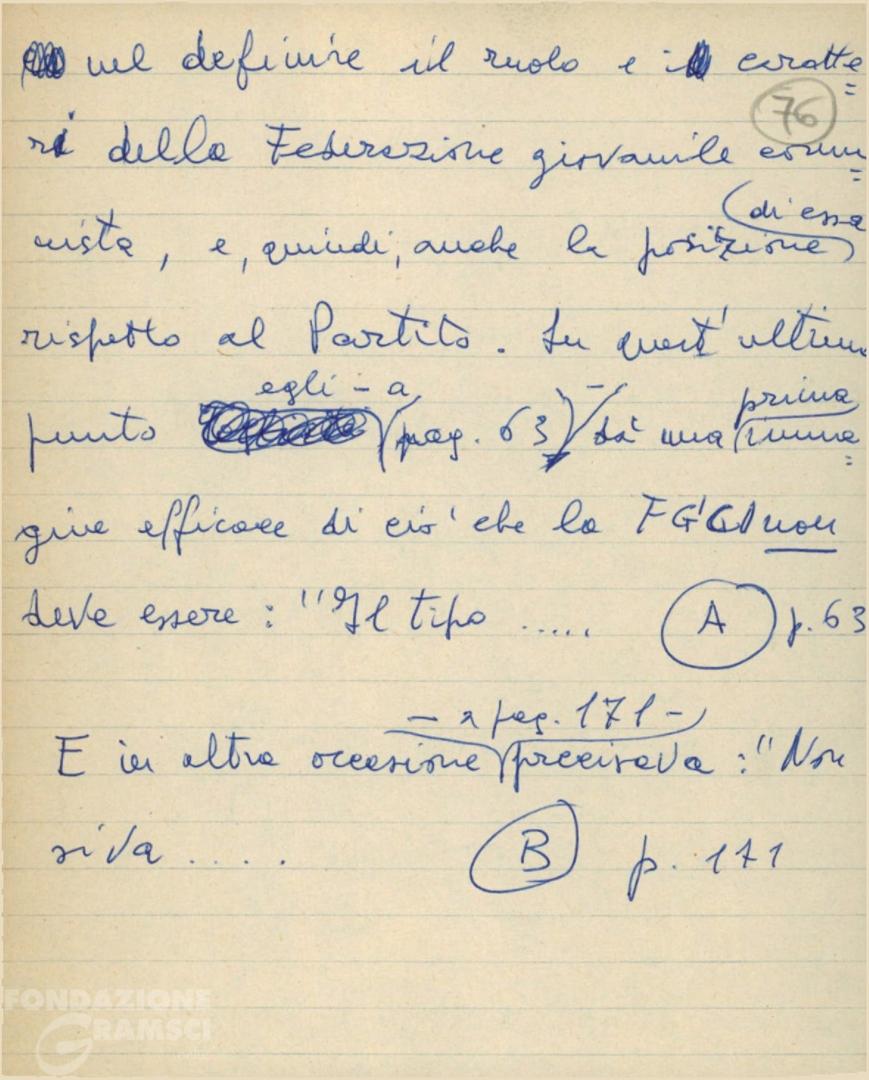 nel definire il ruolo e i caratte=
76
ri della Federazione giovanile comu=
(di essa
nista, e, quindi, anche la posizione)
rispetto al Partito. Su quest'ultimo
egli - a                    -                    prima
punto (pag. 63) dà una imma=
gine efficace di ciò che la FGCI non
deve essere: "Il tipo ..... A p. 63
- a pag. 171 -
E in altra occasione precisava: "Non
si va .... B p. 171
FONDAZIONE
GRAMSCI